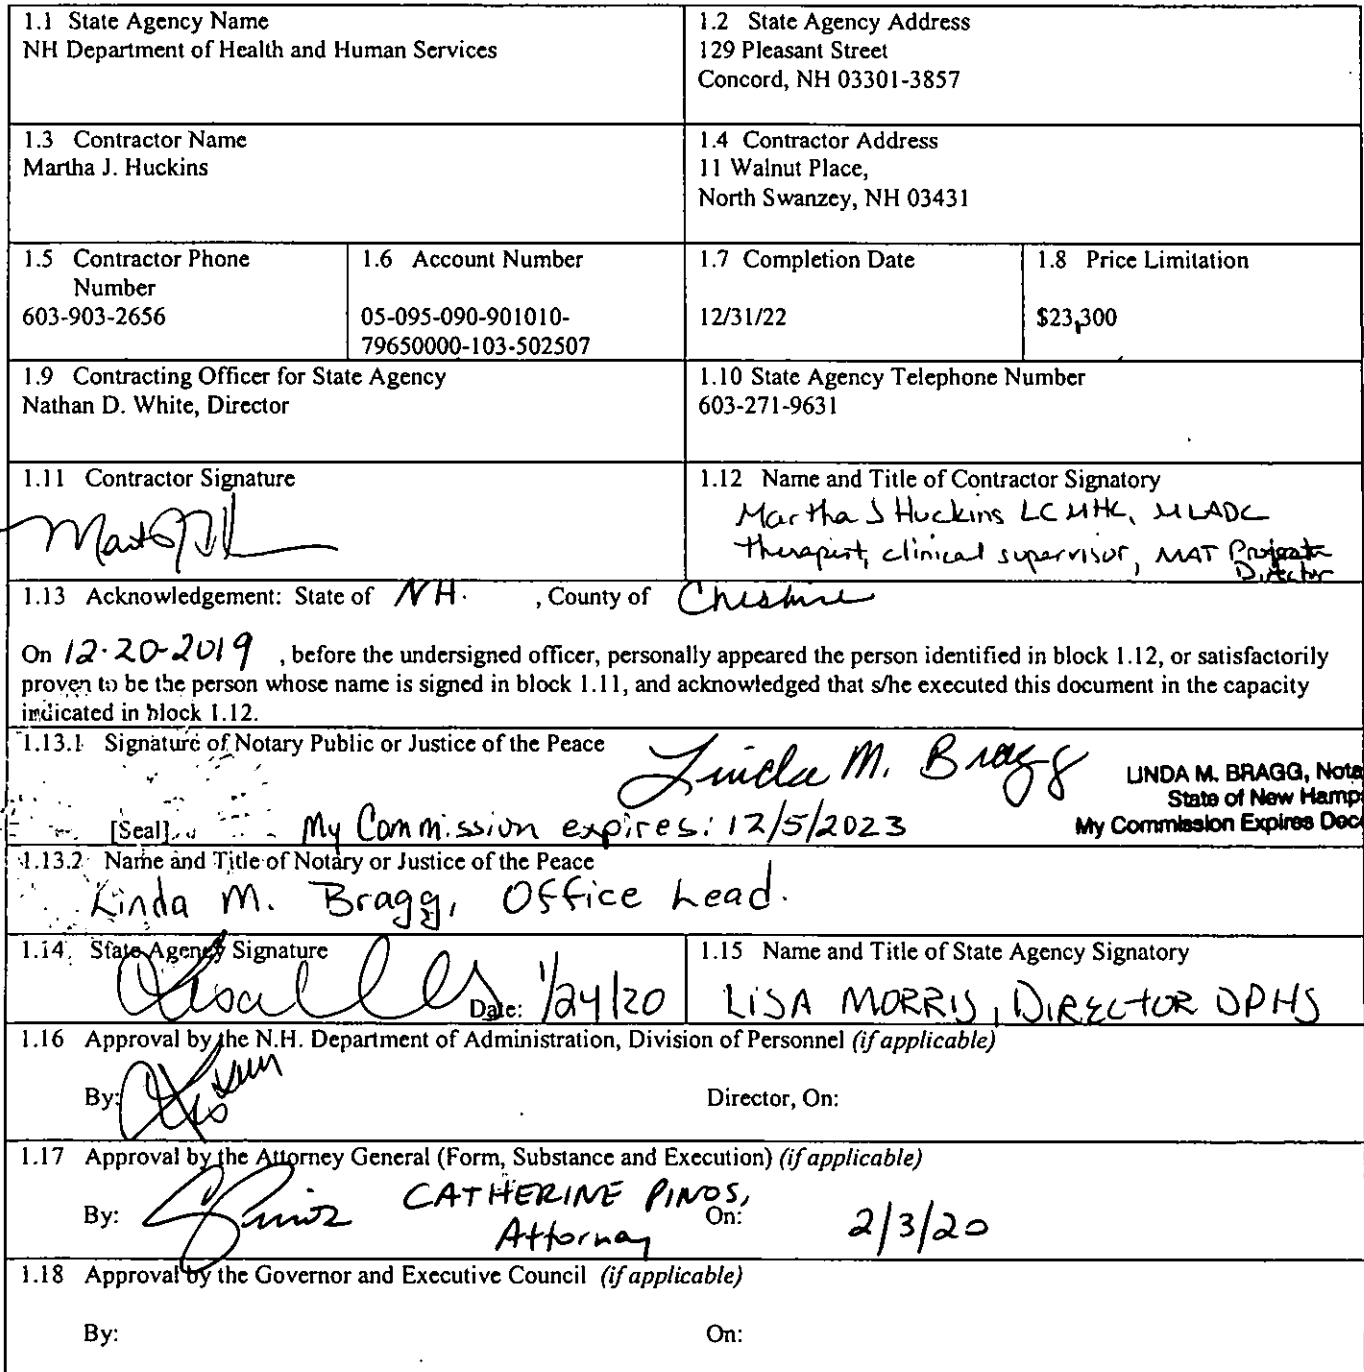 1.1 State Agency Name
NH Department of Health and Human Services
1.2 State Agency Address
129 Pleasant Street
Concord, NH 03301-3857
1.3 Contractor Name
Martha J. Huckins
1.4 Contractor Address
11 Walnut Place,
North Swanzey, NH 03431
1.5 Contractor Phone
Number
603-903-2656
1.6 Account Number
05-095-090-901010-
79650000-103-502507
1.7 Completion Date
12/31/22
1.8 Price Limitation
$23,300
1.9 Contracting Officer for State Agency
Nathan D. White, Director
1.10 State Agency Telephone Number
603-271-9631
1.11 Contractor Signature
1.12 Name and Title of Contractor Signatory
Martha J Huckins LCMHC, MLADC
therapist, clinical supervisor, MAT Projects
Director
1.13 Acknowledgement: State of NH. , County of Cheshire
On 12-20-2019 , before the undersigned officer, personally appeared the person identified in block 1.12, or satisfactorily
proven to be the person whose name is signed in block 1.11, and acknowledged that s/he executed this document in the capacity
indicated in block 1.12.
1.13.1 Signature of Notary Public or Justice of the Peace
Linda M. Bragg
LINDA M. BRAGG, Nota
State of New Hamp
My Commission Expires Dec
[Seal] My Commission expires: 12/5/2023
1.13.2 Name and Title of Notary or Justice of the Peace
Linda M. Bragg, Office Lead.
1.14 State Agency Signature
Date: 1/24/20
1.15 Name and Title of State Agency Signatory
LISA MORRIS, DIRECTOR DPHS
1.16 Approval by the N.H. Department of Administration, Division of Personnel (if applicable)
By: Director, On:
1.17 Approval by the Attorney General (Form, Substance and Execution) (if applicable)
By: CATHERINE PINOS, On: 2/3/20
Attorney
1.18 Approval by the Governor and Executive Council (if applicable)
By: On: